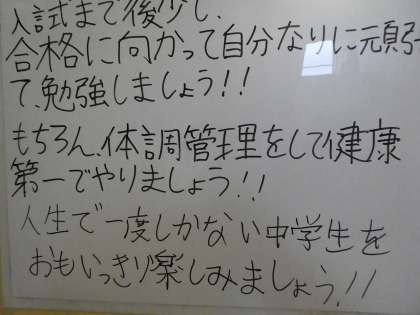 入試まで後少し、
合格に向かって自分なりに元気
て、勉強しましょう!!
もちろん、体調管理をして健康
第一でやりましょう!!
人生で一度しかない中学生を
おもいっきり楽しみましょう!!